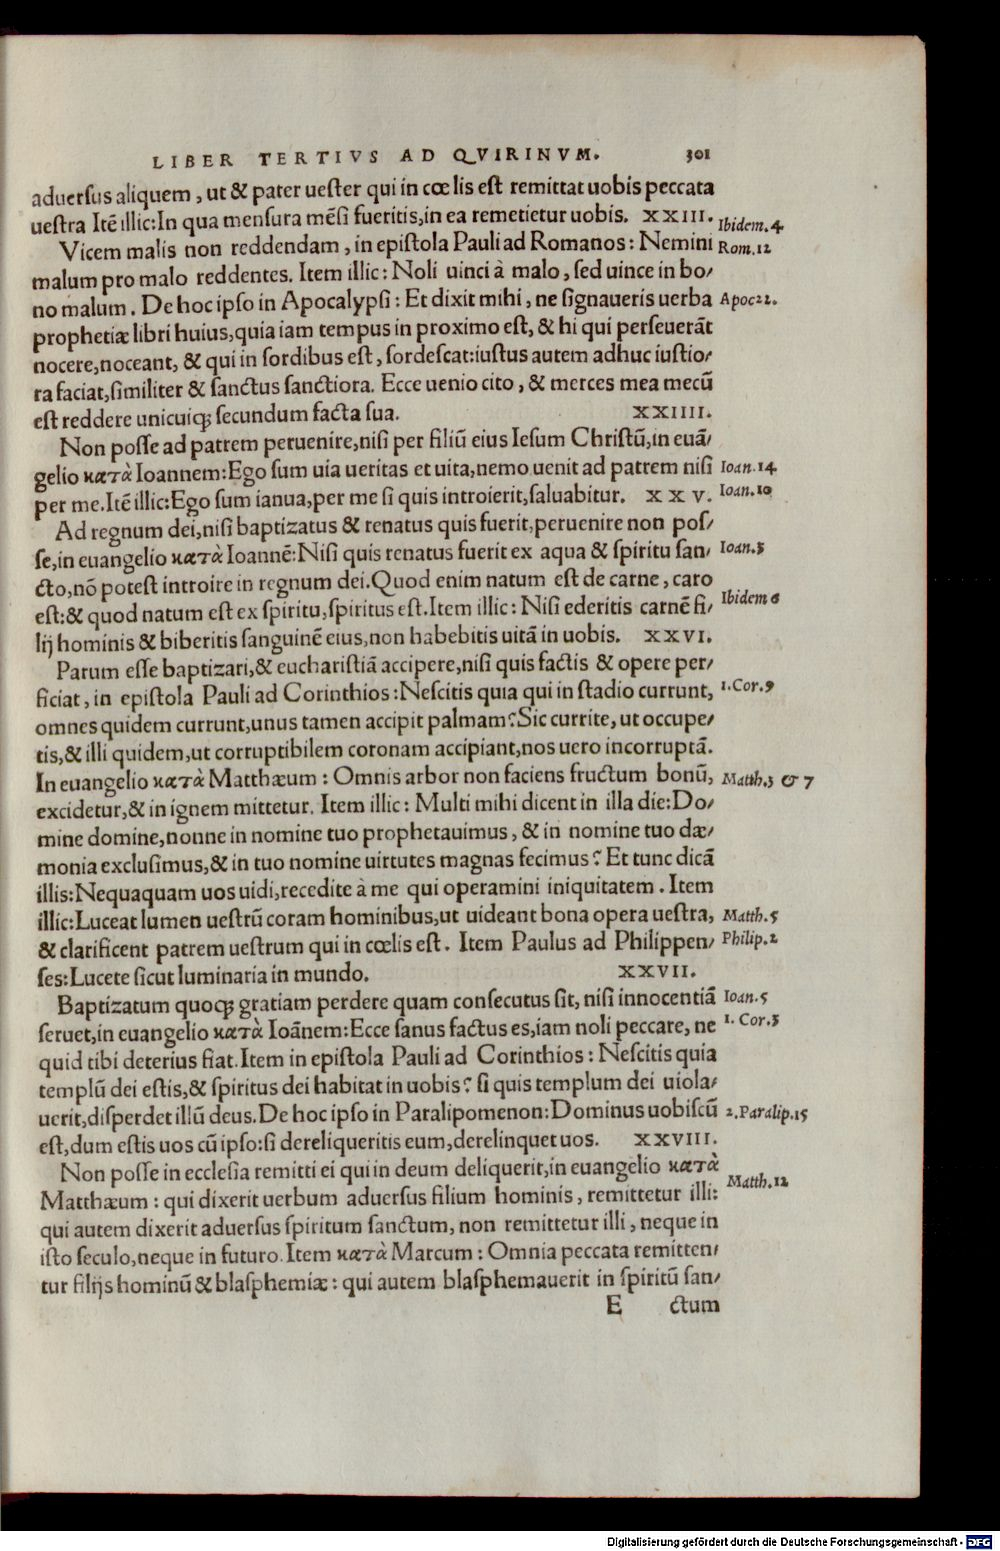 LIBER TERTIVS AD QVIRINVM. 301
aduersus aliquem, ut & pater uester qui in cœlis est remittat uobis peccata
uestra Itẽ illic: In qua mensura mẽsi fueritis, in ea remetietur uobis. XXIII. Ibidem. 4
Vicem malis non reddendam, in epistola Pauli ad Romanos: Nemini Rom. 12
malum pro malo reddentes. Item illic: Noli uinci à malo, sed uince in bo/
no malum. De hoc ipso in Apocalypsi: Et dixit mihi, ne signaueris uerba Apoc 22.
prophetiæ libri huius, quia iam tempus in proximo est, & hi qui perseuerãt
nocere, noceant, & qui in sordibus est, sordescat: iustus autem adhuc iustio/
ra faciat, similiter & sanctus sanctiora. Ecce uenio cito, & merces mea mecũ
est reddere unicuiqꝫ secundum facta sua. XXIIII.
Non posse ad patrem peruenire, nisi per filiũ eius Iesum Christũ, in euã/
gelio κατὰ Ioannem: Ego sum uia ueritas et uita, nemo uenit ad patrem nisi Ioan. 14
per me. Itẽ illic: Ego sum ianua, per me si quis introierit, saluabitur. XXV. Ioan. 10
Ad regnum dei, nisi baptizatus & renatus quis fuerit, peruenire non pos/
se, in euangelio κατὰ Ioannẽ: Nisi quis renatus fuerit ex aqua & spiritu san/ Ioan. 3
cto, nõ potest introire in regnum dei. Quod enim natum est de carne, caro
est: & quod natum est ex spiritu, spiritus est. Item illic: Nisi ederitis carnẽ fi/ Ibidem 6
lij hominis & biberitis sanguinẽ eius, non habebitis uitã in uobis. XXVI.
Parum esse baptizari, & eucharistiã accipere, nisi quis factis & opere per/
ficiat, in epistola Pauli ad Corinthios: Nescitis quia qui in stadio currunt, 1. Cor. 9
omnes quidem currunt, unus tamen accipit palmam? Sic currite, ut occupe/
tis, & illi quidem, ut corruptibilem coronam accipiant, nos uero incorruptã.
In euangelio κατὰ Matthæum: Omnis arbor non faciens fructum bonũ, Matth. 3 & 7
excidetur, & in ignem mittetur. Item illic: Multi mihi dicent in illa die: Do/
mine domine, nonne in nomine tuo prophetauimus, & in nomine tuo dæ/
monia exclusimus, & in tuo nomine uirtutes magnas fecimus? Et tunc dicã
illis: Nequaquam uos uidi, recedite à me qui operamini iniquitatem. Item
illic: Luceat lumen uestrũ coram hominibus, ut uideant bona opera uestra, Matth. 5
& clarificent patrem uestrum qui in cœlis est. Item Paulus ad Philippen/ Philip. 2
ses: Lucete sicut luminaria in mundo. XXVII.
Baptizatum quoqꝫ gratiam perdere quam consecutus sit, nisi innocentiã Ioan. 5
seruet, in euangelio κατὰ Ioãnem: Ecce sanus factus es, iam noli peccare, ne 1. Cor. 3
quid tibi deterius fiat. Item in epistola Pauli ad Corinthios: Nescitis quia
templũ dei estis, & spiritus dei habitat in uobis? si quis templum dei uiola/
uerit, disperdet illũ deus. De hoc ipso in Paralipomenon: Dominus uobiscũ 2. Paralip. 15
est, dum estis uos cũ ipso: si dereliqueritis eum, derelinquet uos. XXVIII.
Non posse in ecclesia remitti ei qui in deum deliquerit, in euangelio κατὰ
Matthæum: qui dixerit uerbum aduersus filium hominis, remittetur illi: Matth. 12
qui autem dixerit aduersus spiritum sanctum, non remittetur illi, neque in
isto seculo, neque in futuro. Item κατὰ Marcum: Omnia peccata remitten/
tur filijs hominũ & blasphemiæ: qui autem blasphemauerit in spiritũ san/
E ctum
Digitalisierung gefördert durch die Deutsche Forschungsgemeinschaft - DFG